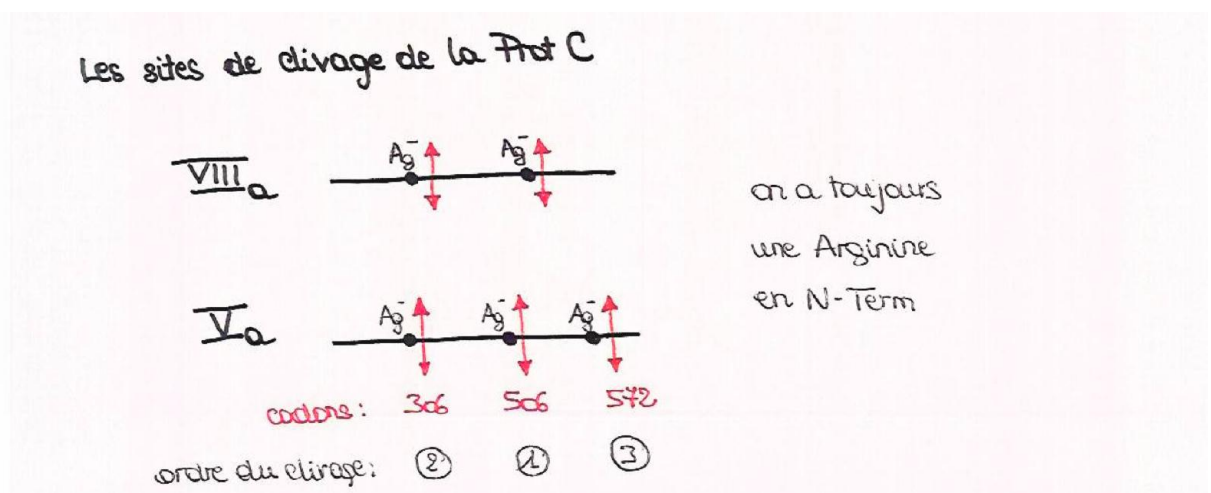 Les sites de clivage de la Prot C
Ag⁻ Ag⁻
VIIIa
on a toujours
une Arginine
en N-Term
Ag⁻ Ag⁻ Ag⁻
Va
codons: 306 506 572
ordre du clivage: ② ① ③